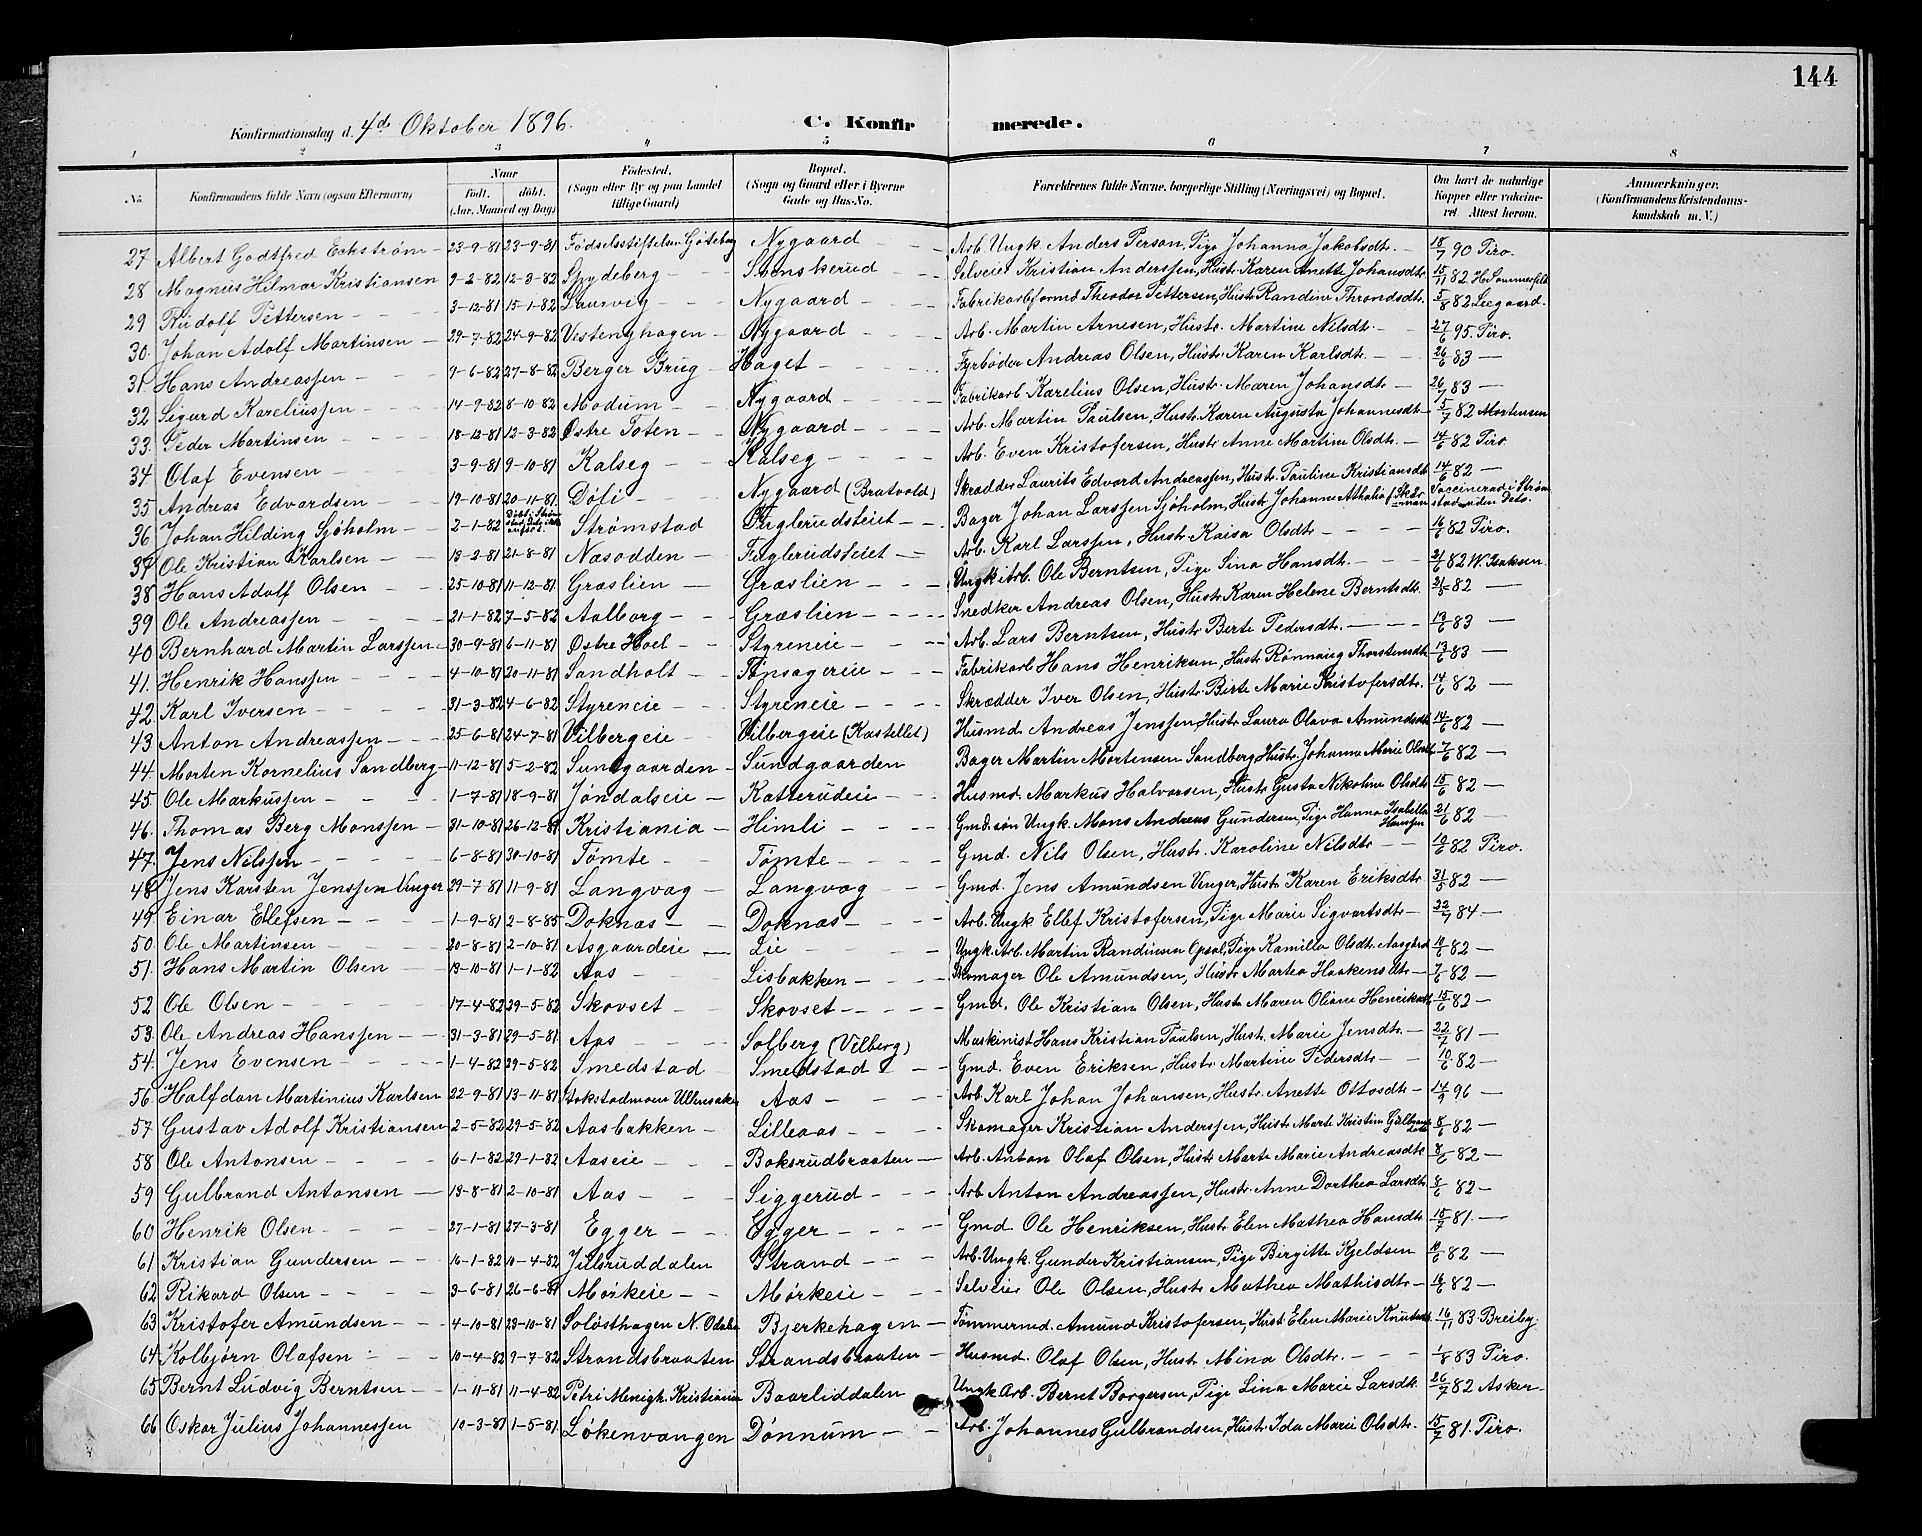 144
Konfirmationsdag d. 4d Oktober 1896. C. Konfirmerede.
1 2 3 4 5 6 7 8
No. Konfirmandens fulde Navn (ogsaa Efternavn) Naar født. døbt. (Aar, Maaned og Dag) Fødested. (Sogn eller By og paa Landet tillige Gaard) Bopæl. (Sogn og Gaard eller i Byerne Gade og Hus-No. Forældrenes fulde Navne, borgerlige Stilling (Næringsvei) og Bopæl. Om havt de naturlige Kopper eller vaccineret Attest herom. Anmærkninger. (Konfirmandens Kristendomskundskab m. V.)
27 Albert Godtfred Eckström 23-9-81 23-9-81 Fødselsstiftelsen Gøteborg Nygaard Arb. Ungk. Anders Person, Pige Johanna Jakobsdtr. 18/7 90 Piro.
28 Magnus Hilmar Kristiansen 9-2-82 12-3-82 Spydeberg Svenskerud Selveier Kristian Anderssen, Hustr. Karen Anette Johansdtr. 15/11 82 Hr. Sommerfeldt
29 Rudolf Pettersen 3-12-81 15-1-82 Laurvig Nygaard Fabrikarbformd Theodor Pettersen, Hustr. Randine Throndsdtr. 5/8 82 Leegaard.
30. Johan Adolf Martinsen 29-7-82 24-9-82 Vestenghagen Nygaard Arb. Martin Arnesen, Hustr. Martine Nilsdtr. 27/6 95 Piro.
31 Hans Andreassen 9-6-82 27-8-82 Berger Brug Haget Fyrbøder Andreas Olsen, Hustr. Karen Karlsdtr. 26/6 83
32 Sigurd Kareliussen 14-9-82 8-10-82 Modum Nygaard Fabrikarb. Karelius Olsen, Hustr. Maren Johansdtr 26/7 83
33. Peder Martinsen 18-12-81 12-3-82 Østre Toten Nygaard Arb. Martin Paulsen, Hustr. Karen Augusta Johannesdtr 5/7 82 Mortensen
34 Olaf Evensen 3-9-81 9-10-81 Kalseg Kalseg Arb. Even Kristofersen, Hustr. Anne Martine Olsdtr. 14/6 82 Piro
35 Andreas Edvardsen 19-10-81 20-11-81 Døli Nygaard (Bratvold) Skrædder Laurits Edvard Andreassen, Hustr. Pauline Kristiansdt. 14/6 82
36 Johan Hilding Sjöholm 2-1-82 Strømstad Fuglerudsteiet Bager Johan Larssen Sjöholm, Hustr. Johanne Athalia Vaccinerad i Strømstad uden Dato.
37 Ole Kristian Karlsen 13-2-81 21-8-81 Næsodden Fuglerudsteiet Arb. Karl Larssen, Hustr. Kaisa Olsdtr 16/6 82 Piro.
38 Hans Adolf Olsen 25-10-81 11-12-81 Græslien Græslien Ungk. Arb. Ole Berntsen, Pige Lina Hansdt. 21/6 82 W. Isaksen.
39 Ole Andreassen 21-1-82 7-5-82 Aalborg Græslien Snedker Andreas Olsen, Hustr. Karen Helene Berntsdtr. 21/5 82
40 Bernhard Martin Larssen 30-9-81 6-11-81 Østre Hoel Styreneie Arb. Lars Berntsen, Hustr. Berte Pedersdtr. 19/6 83
41. Henrik Hanssen 4-10-81 20-11-81 Sandholt Tønsagereie Fabrikarb Hans Henriksen, Hustr. Rønnaug Thorstensdtr 13/6 83
42. Karl Iversen 31-3-82 4-6-82 Styreneie Styreneie Skrædder Iver Olsen, Hustr. Birte Marie Kristofersdtr. 14/6 82
43 Anton Andreassen 25-6-81 24-7-81 Vilbergeie Vilbergeie (Kastellet) Husmd. Andreas Jenssen, Hustr. Laura Olava Amundsdt. 14/6 82
44. Morten Kornelius Sandberg 11-12-81 5-2-82 Sundgaarden Sundgaarden Bager Martin Mortensen Sandberg, Hustr. Johanna Marie Olsdt 7/6 82
45. Ole Markussen 1-7-81 18-9-81 Jøndalseie Katterudeie Husmd. Markus Halvorsen, Hustr. Gusta Nikoline Olsdtr 15/6 82
46. Thomas Berg Monssen 31-10-81 26-12-81 Kristiania Himli Gmd. søn Ungk. Mons Andreas Gundersen, Pige Hanna Isabella Hanssen 21/6 82
47. Jens Nilssen 6-8-81 30-10-81 Tømte Tømte Gmd. Nils Olsen, Hustr. Karoline Nilsdtr 10/6 82 Piro.
48 Jens Karsten Jenssen Unger 29-7-81 11-9-81 Langvag Langvag Gmd. Jens Amundsen Unger, Hustr. Karen Eriksdtr 31/5 82
49. Einar Ellefsen 1-9-81 2-8-85 Doknæs Doknæs Arb. Ungk. Ellef Kristofersen, Pige Marie Sigvartsdtr 22/7 84
50. Ole Martinsen 20-8-81 2-10-81 Asgaardeie Lie Ungk. Arb. Martin Randinsen Opsal, Pige Kamilla Olsdtr. Aasgård 10/6 82
51. Hans Martin Olsen 13-10-81 1-1-82 Aas Lisbakken Skomager Ole Amundsen, Hustr Martea Haakensdtr 7/6 82
52 Ole Olsen 17-4-82 29-5-82 Skovset Skovset Gmd. Ole Kristian Olsen, Hustr. Maren Oliane Henriksdt 15/6 82
53. Ole Andreas Hanssen 31-3-81 29-5-81 Aas Solberg (Vilberg) Maskinist Hans Kristian Paulsen, Hustr. Marie Jensdtr. 22/7 81
54. Jens Evensen 1-4-82 29-5-82 Smedstad Smedstad Gmd. Even Eriksen, Hustr. Martine Pedersdtr 10/6 82
56 Halfdan Martinius Karlsen 22-9-81 13-11-81 Stokstadmoen Ullensaker Aas Arb. Karl Johan Johansen, Hustr. Anette Ottosdtr 14/9 96
57 Gustav Adolf Kristiansen 2-5-82 29-5-82 Aasbakken Lilleaas Skomager Kristian Anderssen, Hustr. Marte Kristine Gulbrandsdtr 8/6 82
58 Ole Antonsen 6-1-82 29-1-82 Aaseie Boksrudbraaten Arb. Anton Olaf Olsen, Hustr. Marte Marie Andreasdtr 8/6 82
59 Gulbrand Antonsen 19-8-81 2-10-81 Aas Siggerud Arb. Anton Andreassen, Hustr. Anne Dorthea Larsdtr. 8/6 82
60 Henrik Olsen 27-1-81 27-3-81 Egger Egger Gmd. Ole Henriksen, Hustr. Elen Mathea Hansdtr 15/7 81
61 Kristian Gundersen 16-1-82 10-4-82 Julsruddalen Strand Arb. Ungk. Gunder Kristiansen, Pige Birgitte Kjeldsen 10/6 82
62 Rikard Olsen 3-6-81 26-6-81 Mørkeie Mørkeie Selveier Ole Olsen, Hustr. Mathea Mathisdtr 16/6 82
63 Kristofer Amundsen 4-10-81 23-10-81 Soløsthagen N. Odalen Bjerkehagen Tømmermd. Amund Kristofersen, Hust. Elen Marie Knutsdt 16/11 83 Breiby.
64 Kolbjørn Olafsen 10-4-82 9-7-82 Strandsbraaten Strandsbraaten Husmd. Olaf Olsen, Hustr. Mina Olsdtr. 1/8 83 Piro.
65 Bernt Ludvig Berntsen 1-11-81 11-4-82 Petri Menigh. Kristiania Baarliddalen Ungk. Arb. Bernt Borgersen, Pige Lina Marie Larsdt. 26/7 82 Asker
66 Oskar Julius Johannessen 10-3-81 1-5-81 Løkenvangen Dønnum Arb. Johannes Gulbrandsen, Hustr. Ida Marie Olsdtr. 15/7 81. Piro.